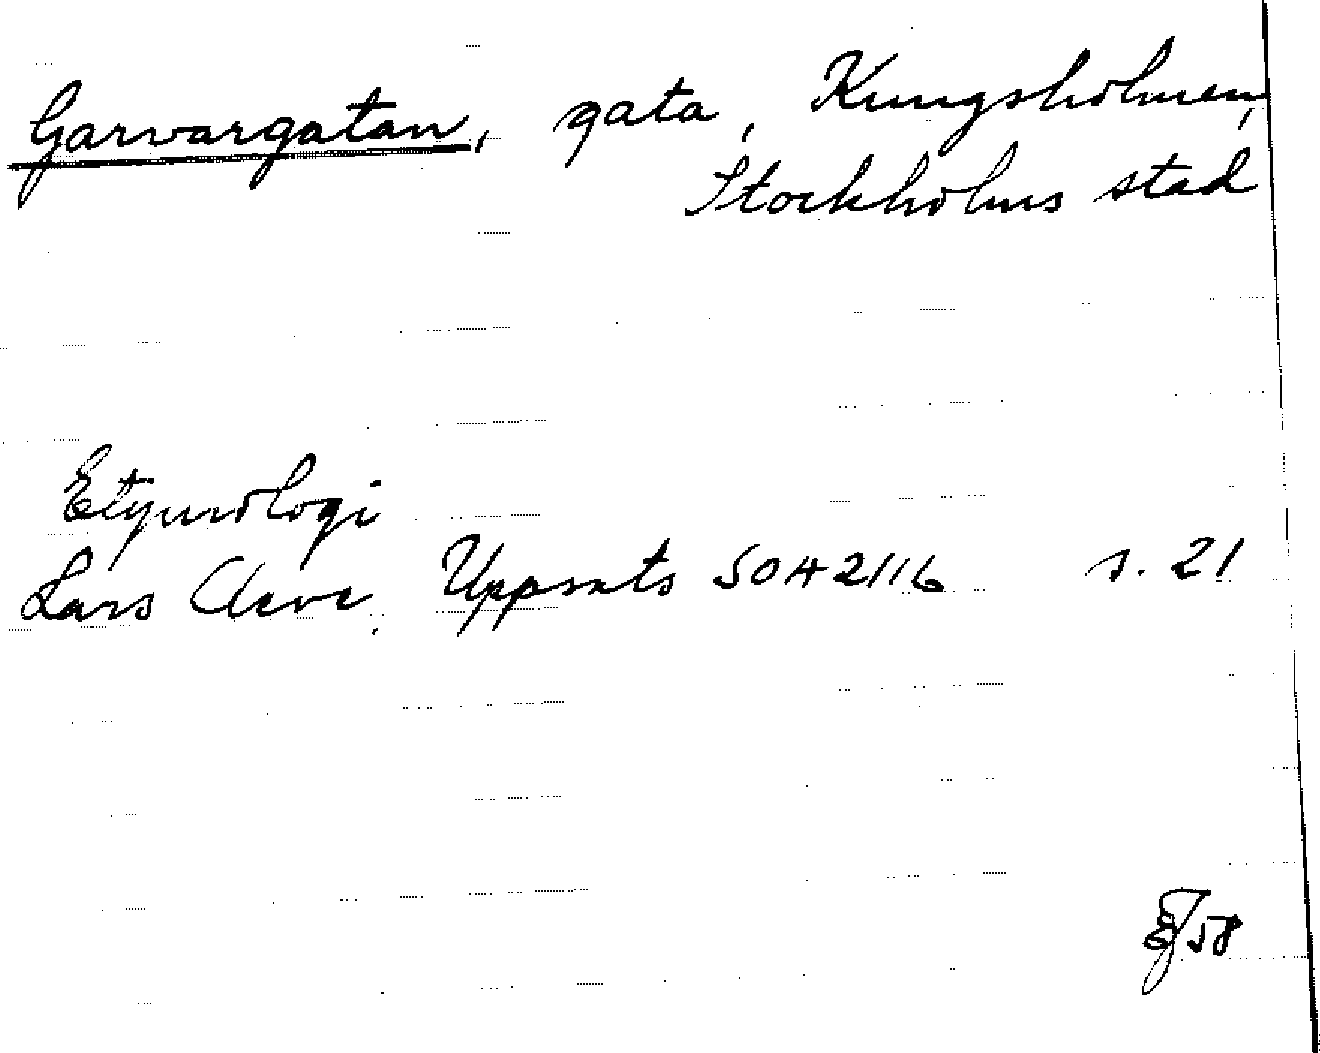 Garvargatan, gata, Kungsholmen,
Stockholms stad
Etymologi
Lars Cleve, Uppsats SOA 2116 s. 21
/58